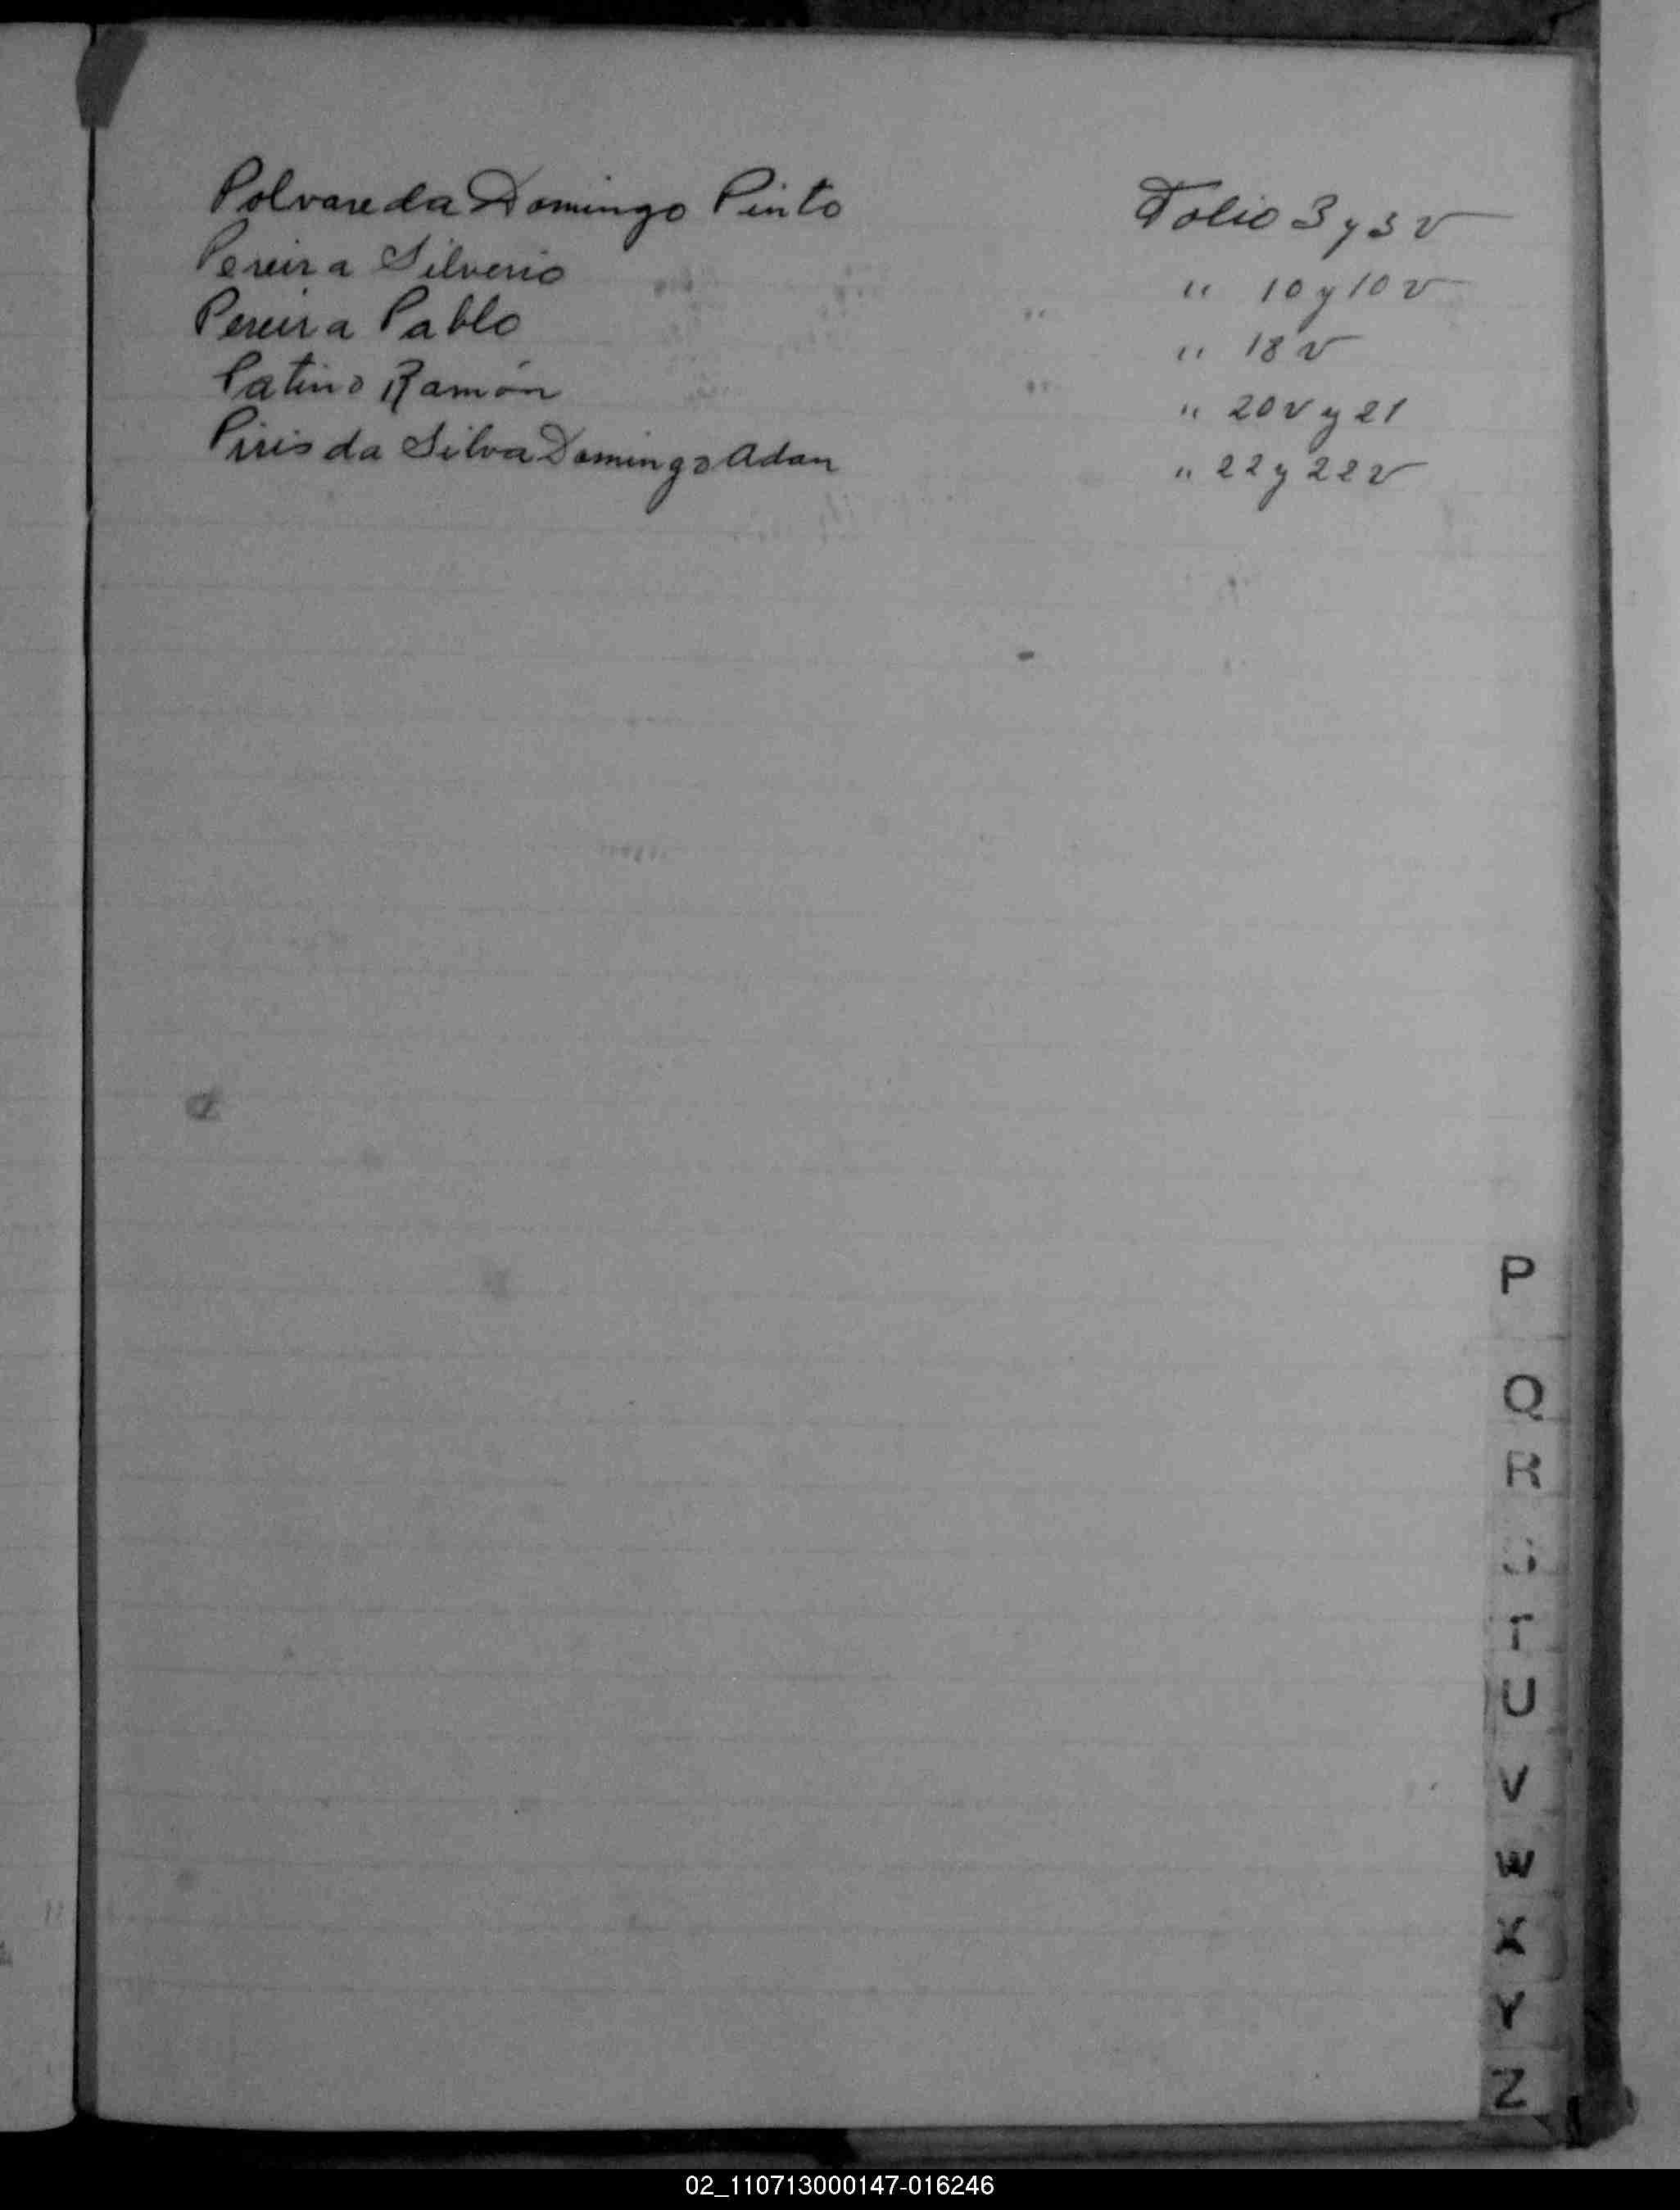 Polvareda Domingo Pinto Folio 3 y 3 v
Pereira Silverio " 10 y 10 v
Pereira Pablo " 18 v
Patino Ramón " 20 v y 21
Piris da Silva Domingo Adan " 22 y 22 v
P
Q
R
S
T
U
V
W
X
Y
Z
02_110713000147-016246